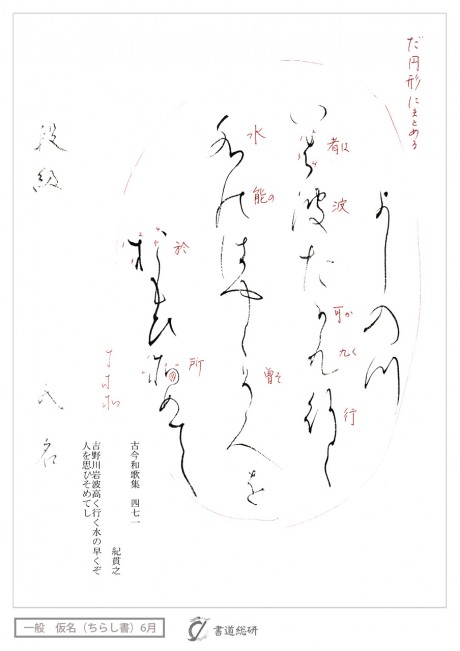 だ円形にまとめる
よしの川
い者波た可九行く
者は
波
可か
九く
行
水能はやく曽人を
水
能の
曽そ
於もひ所めてし
於
所
古今和歌集　四七一
紀貫之
吉野川岩波高く行く水の早くぞ
人を思ひそめてし
段級
氏名
一般　仮名（ちらし書）6月
書道総研